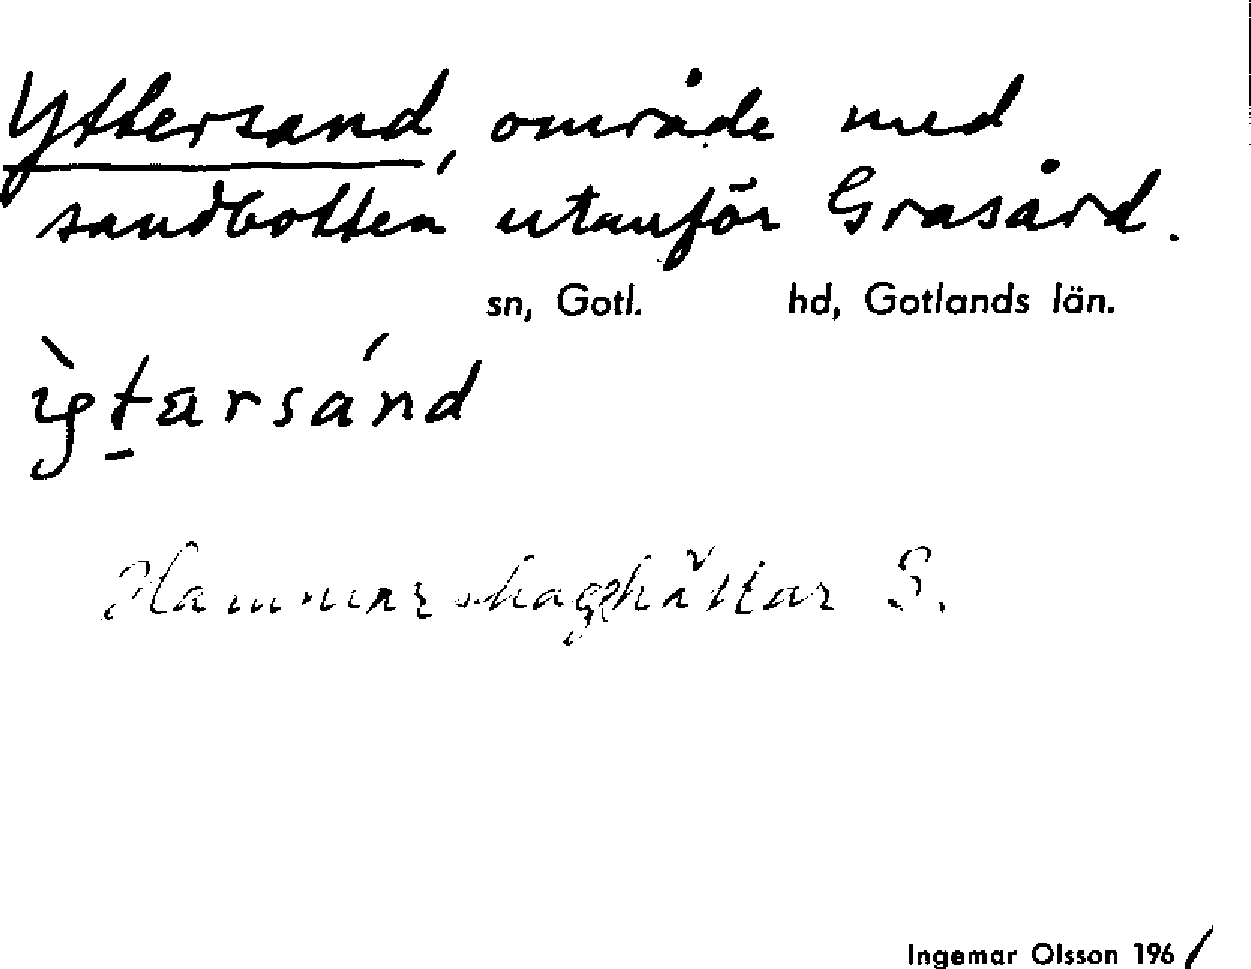 Yttersand, område med
sandbotten utanför Grasård.
sn, Gotl. hd, Gotlands län.
ỳtarsánd
Hammarshaghällar S.
Ingemar Olsson 1961